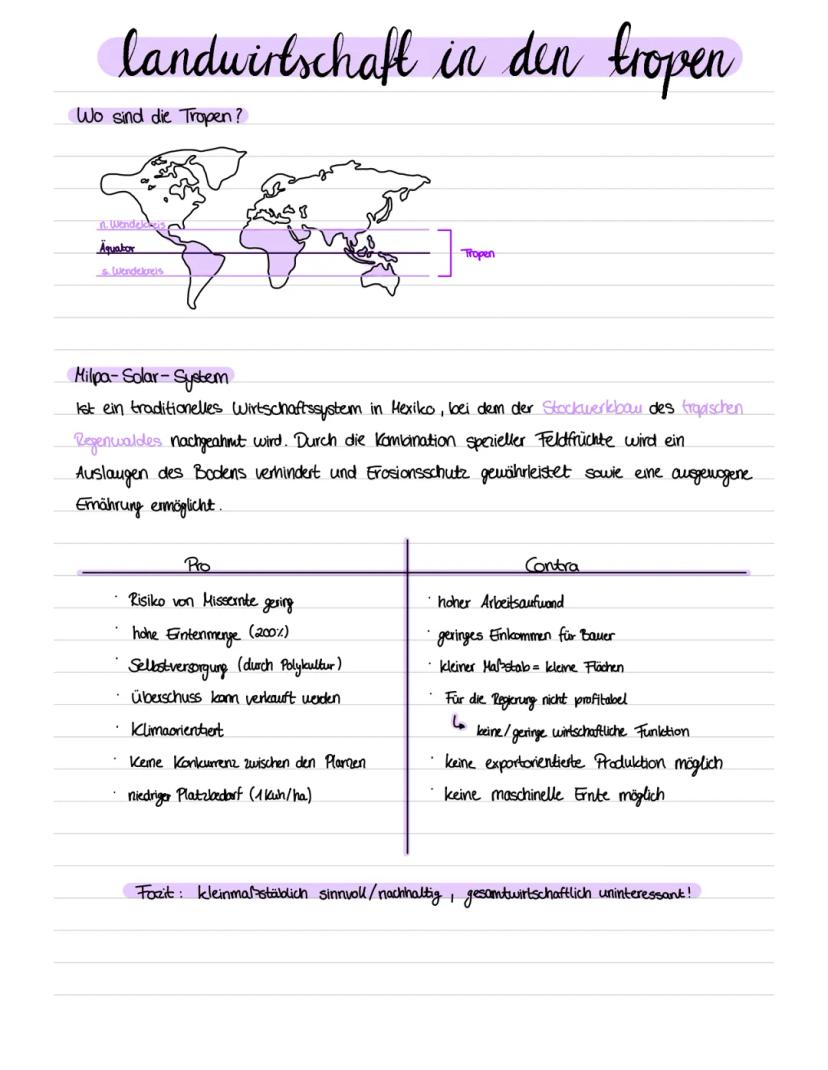 landwirtschaft in den tropen
Wo sind die Tropen?
n. Wendekreis
Äquator
s. Wendekreis
Tropen
Milpa-Solar-System
Ist ein traditionelles Wirtschaftssystem in Mexiko, bei dem der Stockwerkbau des tropischen
Regenwaldes nachgeahmt wird. Durch die Kombination spezieller Feldfrüchte wird ein
Auslaugen des Bodens verhindert und Erosionsschutz gewährleistet sowie eine ausgewogene
Ernährung ermöglicht.
Pro
· Risiko von Missernte gering
· hohe Erntenmenge (200%)
· Selbstversorgung (durch Polykultur)
· Überschuss kann verkauft werden
· Klimaorientiert
· Keine Konkurrenz zwischen den Pflanzen
· niedriger Platzbedarf (1 Kuh/ha)
Contra
· hoher Arbeitsaufwand
· geringes Einkommen für Bauer
· kleiner Maßstab = kleine Flächen
· Für die Regierung nicht profitabel
↳ keine/geringe wirtschaftliche Funktion
· keine exportorientierte Produktion möglich
· keine maschinelle Ernte möglich
Fazit: kleinmaßstäblich sinnvoll/nachhaltig, gesamtwirtschaftlich uninteressant!